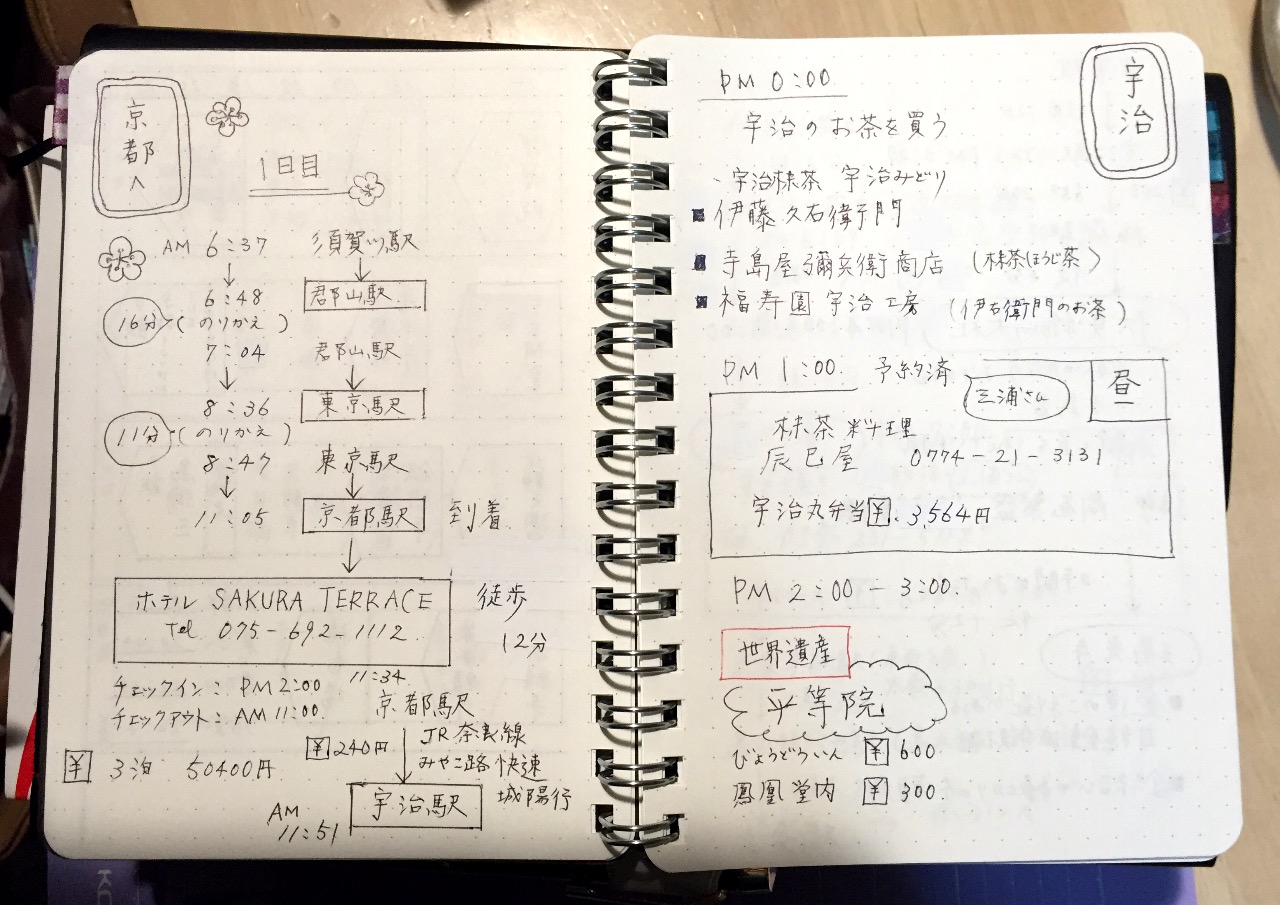 京都へ
1日目
AM 6:37 須賀川駅
6:48 郡山駅
16分 (のりかえ)
7:04 郡山駅
8:36 東京駅
11分 (のりかえ)
8:47 東京駅
11:05 京都駅 到着
ホテル SAKURA TERRACE 徒歩
Tel 075-692-1112 12分
チェックイン: PM2:00
チェックアウト: AM11:00
11:34
京都駅
¥240円 JR奈良線
みやこ路快速
城陽行
¥ 3泊 50400円
AM 11:51 宇治駅
宇治
PM 0:00
宇治のお茶を買う
・宇治抹茶 宇治みどり
■伊藤久右衛門
■寺島屋彌兵衛商店 (抹茶ほうじ茶)
■福寿園宇治工房 (伊右衛門のお茶)
PM 1:00 予約済 三浦さん 昼
抹茶料理
辰巳屋 0774-21-3131
宇治丸弁当¥ 3,564円
PM 2:00-3:00
世界遺産
平等院
びょうどういん ¥ 600
鳳凰堂内 ¥ 300